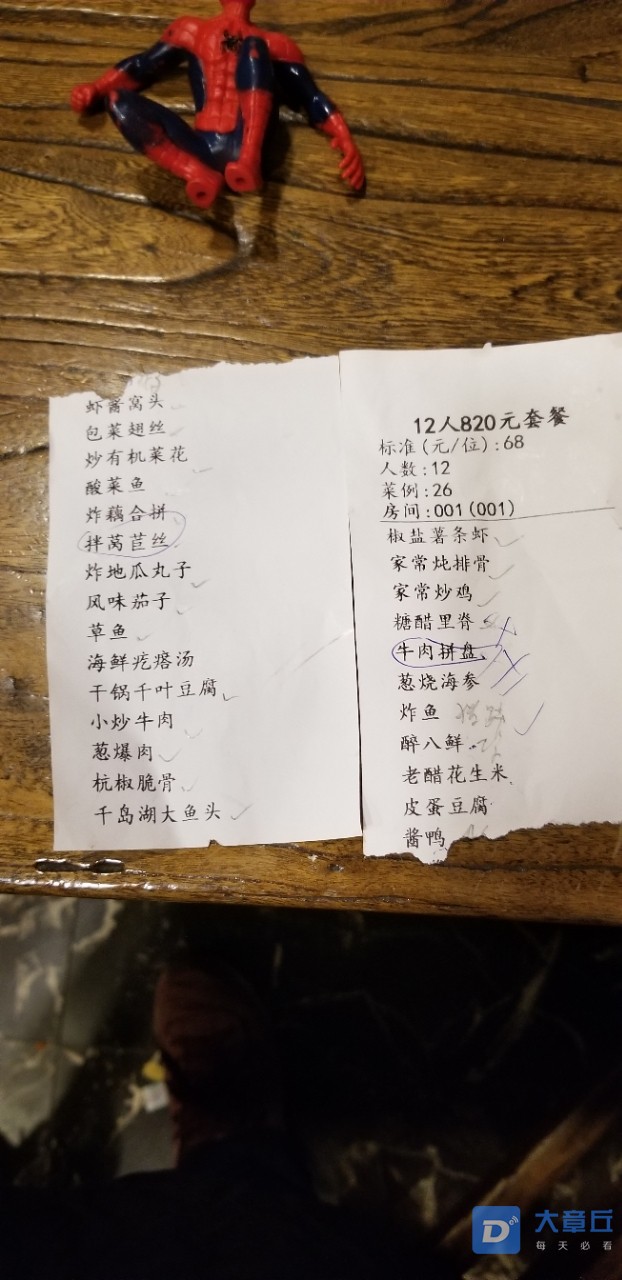 12人820元套餐
标准(元/位):68
人数:12
菜例:26
房间:001(001)
椒盐薯条虾
家常炖排骨
家常炒鸡
糖醋里脊
牛肉拼盘
葱烧海参
炸鱼
醉八鲜
老醋花生米
皮蛋豆腐
酱鸭
虾酱窝头
包菜翅丝
炒有机菜花
酸菜鱼
炸藕合拼
拌莴苣丝
炸地瓜丸子
风味茄子
草鱼
海鲜疙瘩汤
干锅千叶豆腐
小炒牛肉
葱爆肉
杭椒脆骨
千岛湖大鱼头
大章丘
每天必看